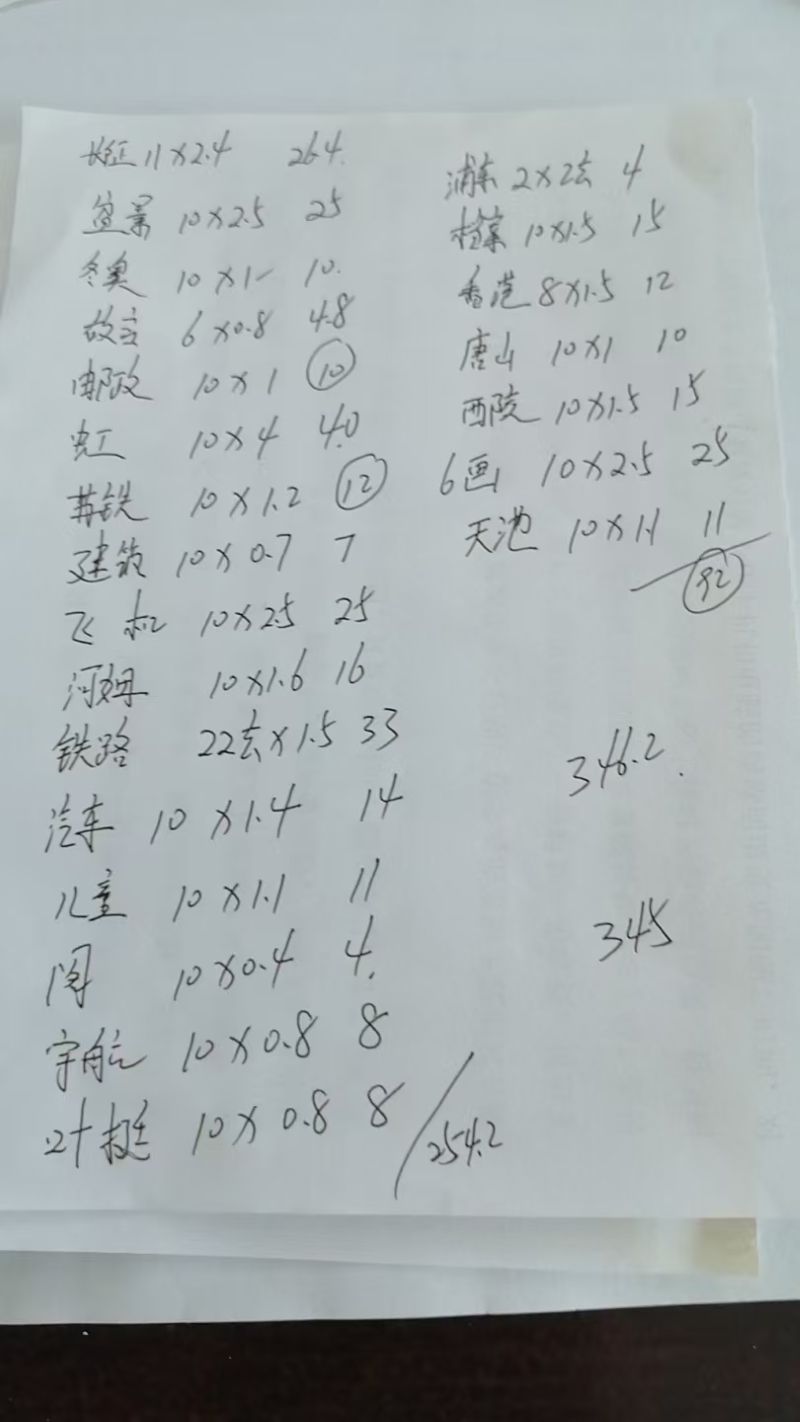 长征 11×2.4 26.4
盆景 10×2.5 25
冬奥 10×1- 10.
故宫 6×0.8 4.8
邮政 10×1 10
虹 10×4 40
苏铁 10×1.2 12
建筑 10×0.7 7
飞机 10×2.5 25
河姆 10×1.6 16
铁路 22套×1.5 33
汽车 10×1.4 14
儿童 10×1.1 11
阁 10×0.4 4.
宇航 10×0.8 8
叶挺 10×0.8 8
254.2
浦东 2×2套 4
10×1.5 15
香港 8×1.5 12
唐山 10×1 10
西陵 10×1.5 15
6画 10×2.5 25
天池 10×1.1 11
92
346.2.
345